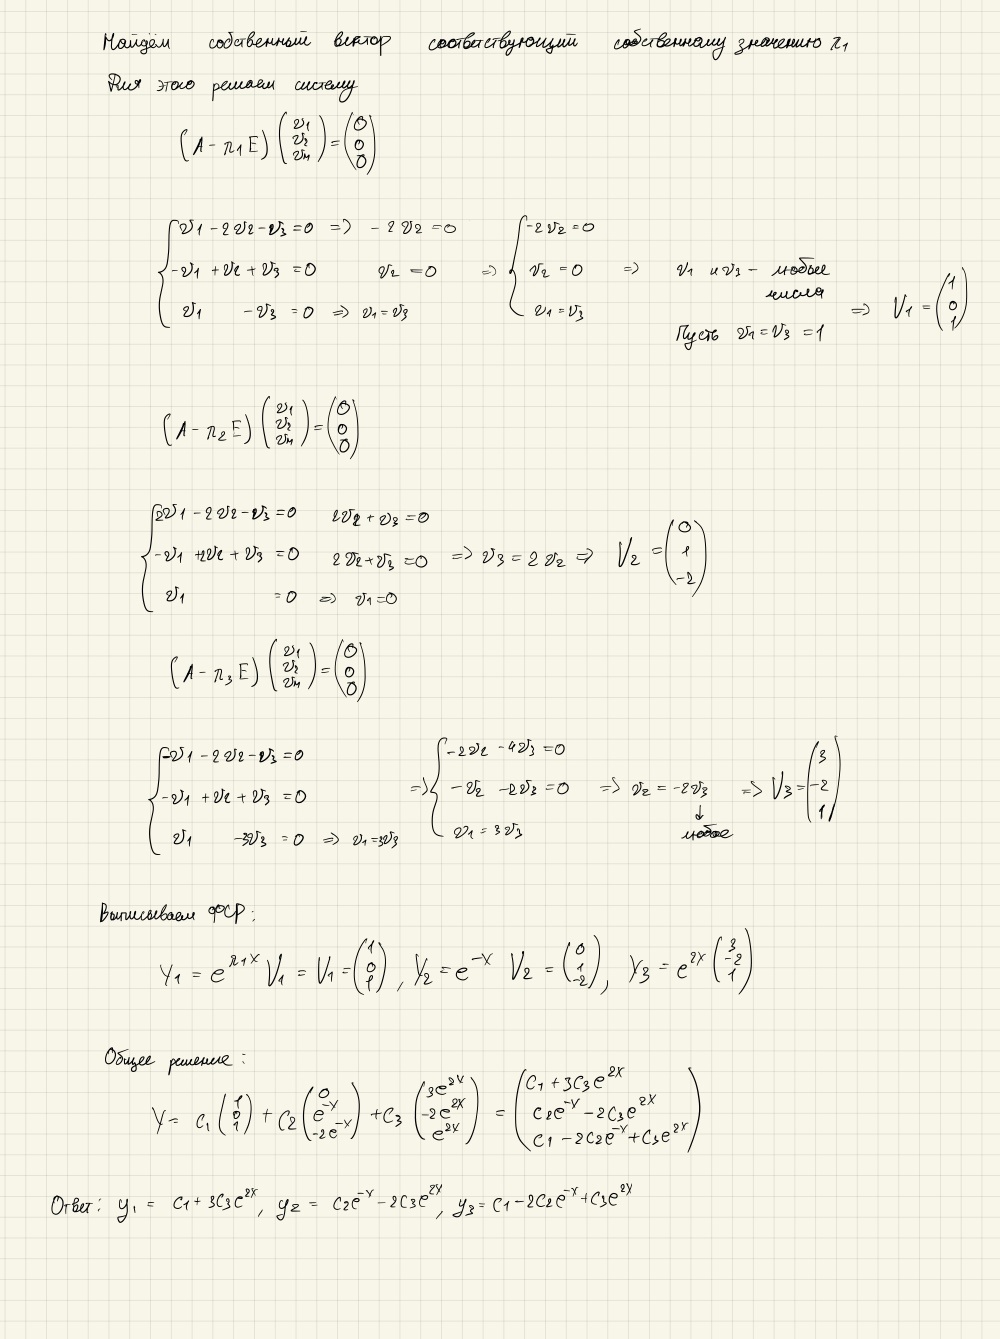 Найдём собственный вектор соответствующий собственному значению λ₁
Для этого решаем систему
(A - λ₁E) (v₁ v₂ v₃) = (0 0 0)
v₁ - 2v₂ - v₃ = 0 => -2v₂ = 0 => -2v₂ = 0
-v₁ + v₂ + v₃ = 0 v₂ = 0 v₂ = 0 => v₁ и v₃ - любые числа
v₁ - v₃ = 0 => v₁ = v₃ v₁ = v₃
Пусть v₁ = v₃ = 1 => V₁ = (1 0 1)
(A - λ₂E) (v₁ v₂ v₃) = (0 0 0)
2v₁ - 2v₂ - v₃ = 0 2v₂ + v₃ = 0
-v₁ + 2v₂ + v₃ = 0 2v₂ + v₃ = 0 => v₃ = 2v₂ => V₂ = (0 1 -2)
v₁ = 0 => v₁ = 0
(A - λ₃E) (v₁ v₂ v₃) = (0 0 0)
-v₁ - 2v₂ - v₃ = 0 => -2v₂ - 4v₃ = 0
-v₁ + v₂ + v₃ = 0 -v₂ - 2v₃ = 0 => v₂ = -2v₃ => V₃ = (3 -2 1)
v₁ - 3v₃ = 0 => v₁ = 3v₃ v₁ = 3v₃ ↓ любое
Выписываем ФСР:
Y₁ = e^(λ₁x) V₁ = V₁ = (1 0 1), Y₂ = e^(-x) V₂ = (0 1 -2), Y₃ = e^(2x) (3 -2 1)
Общее решение:
Y = C₁ (1 0 1) + C₂ (0 e^(-x) -2e^(-x)) + C₃ (3e^(2x) -2e^(2x) e^(2x)) = (C₁ + 3C₃e^(2x) C₂e^(-x) - 2C₃e^(2x) C₁ - 2C₂e^(-x) + C₃e^(2x))
Ответ: y₁ = C₁ + 3C₃e^(2x), y₂ = C₂e^(-x) - 2C₃e^(2x), y₃ = C₁ - 2C₂e^(-x) + C₃e^(2x)